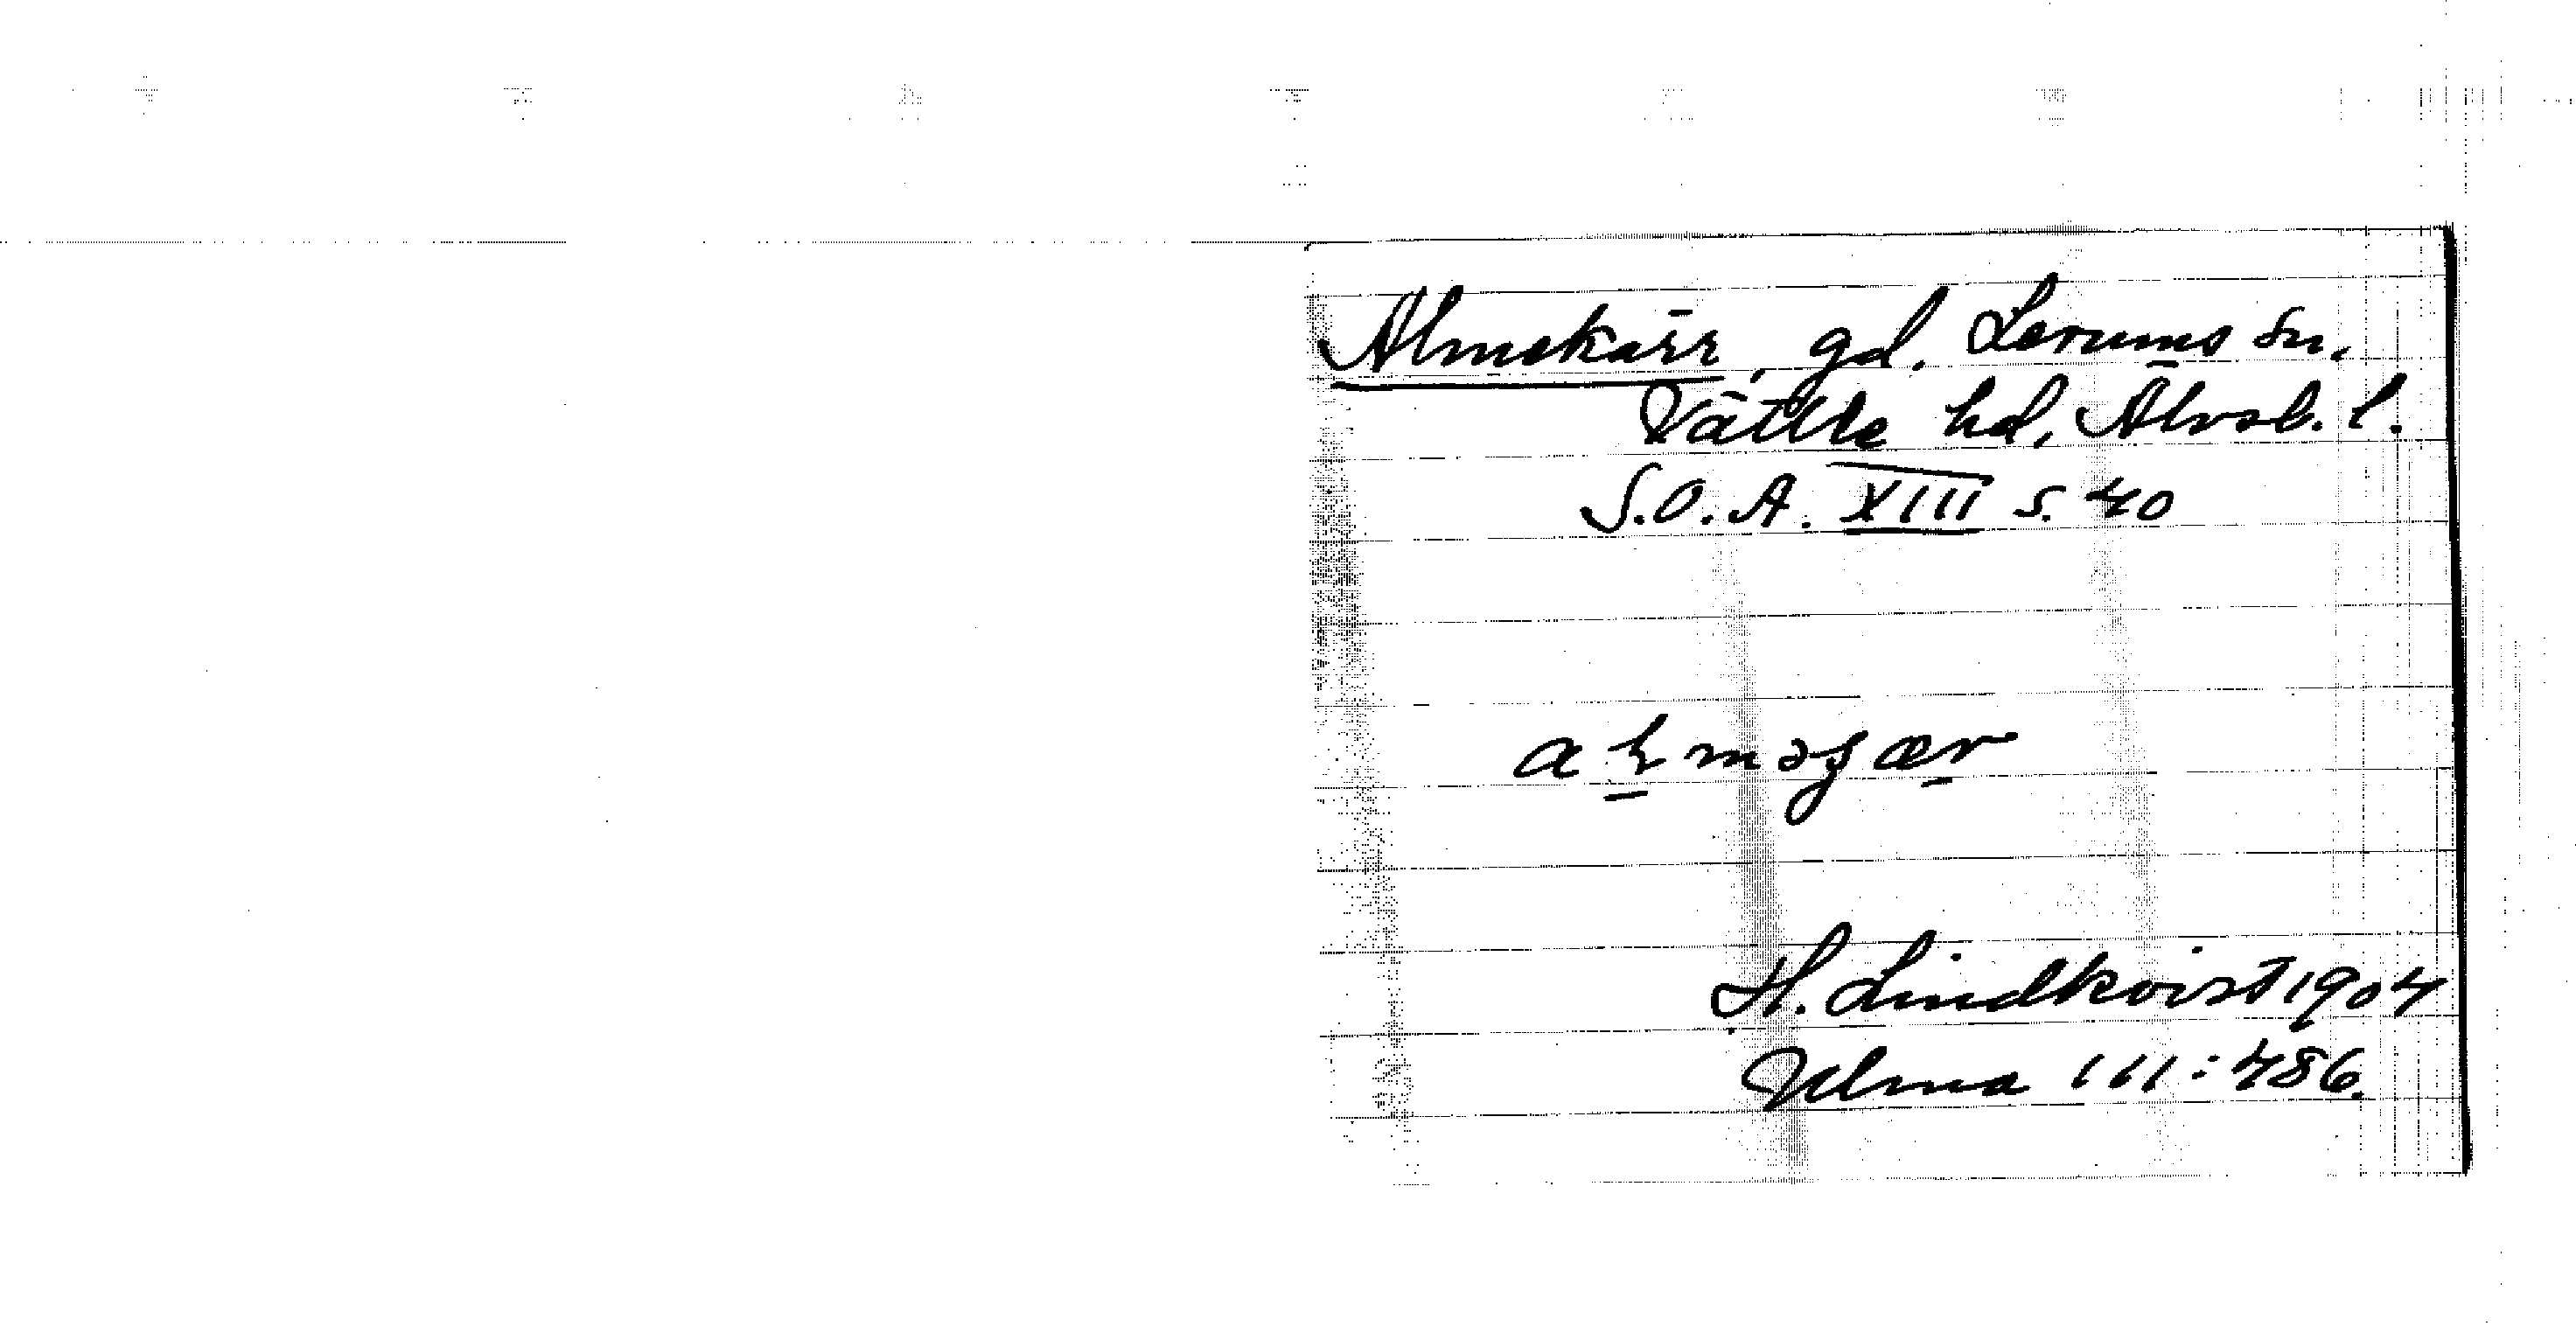 Almekärr, gd. Lerums sn.
Vättle hd, Älvsb. l.
S.O.A. XIII s. 40
H. Lindkvist 1904
Ulma 111:486.